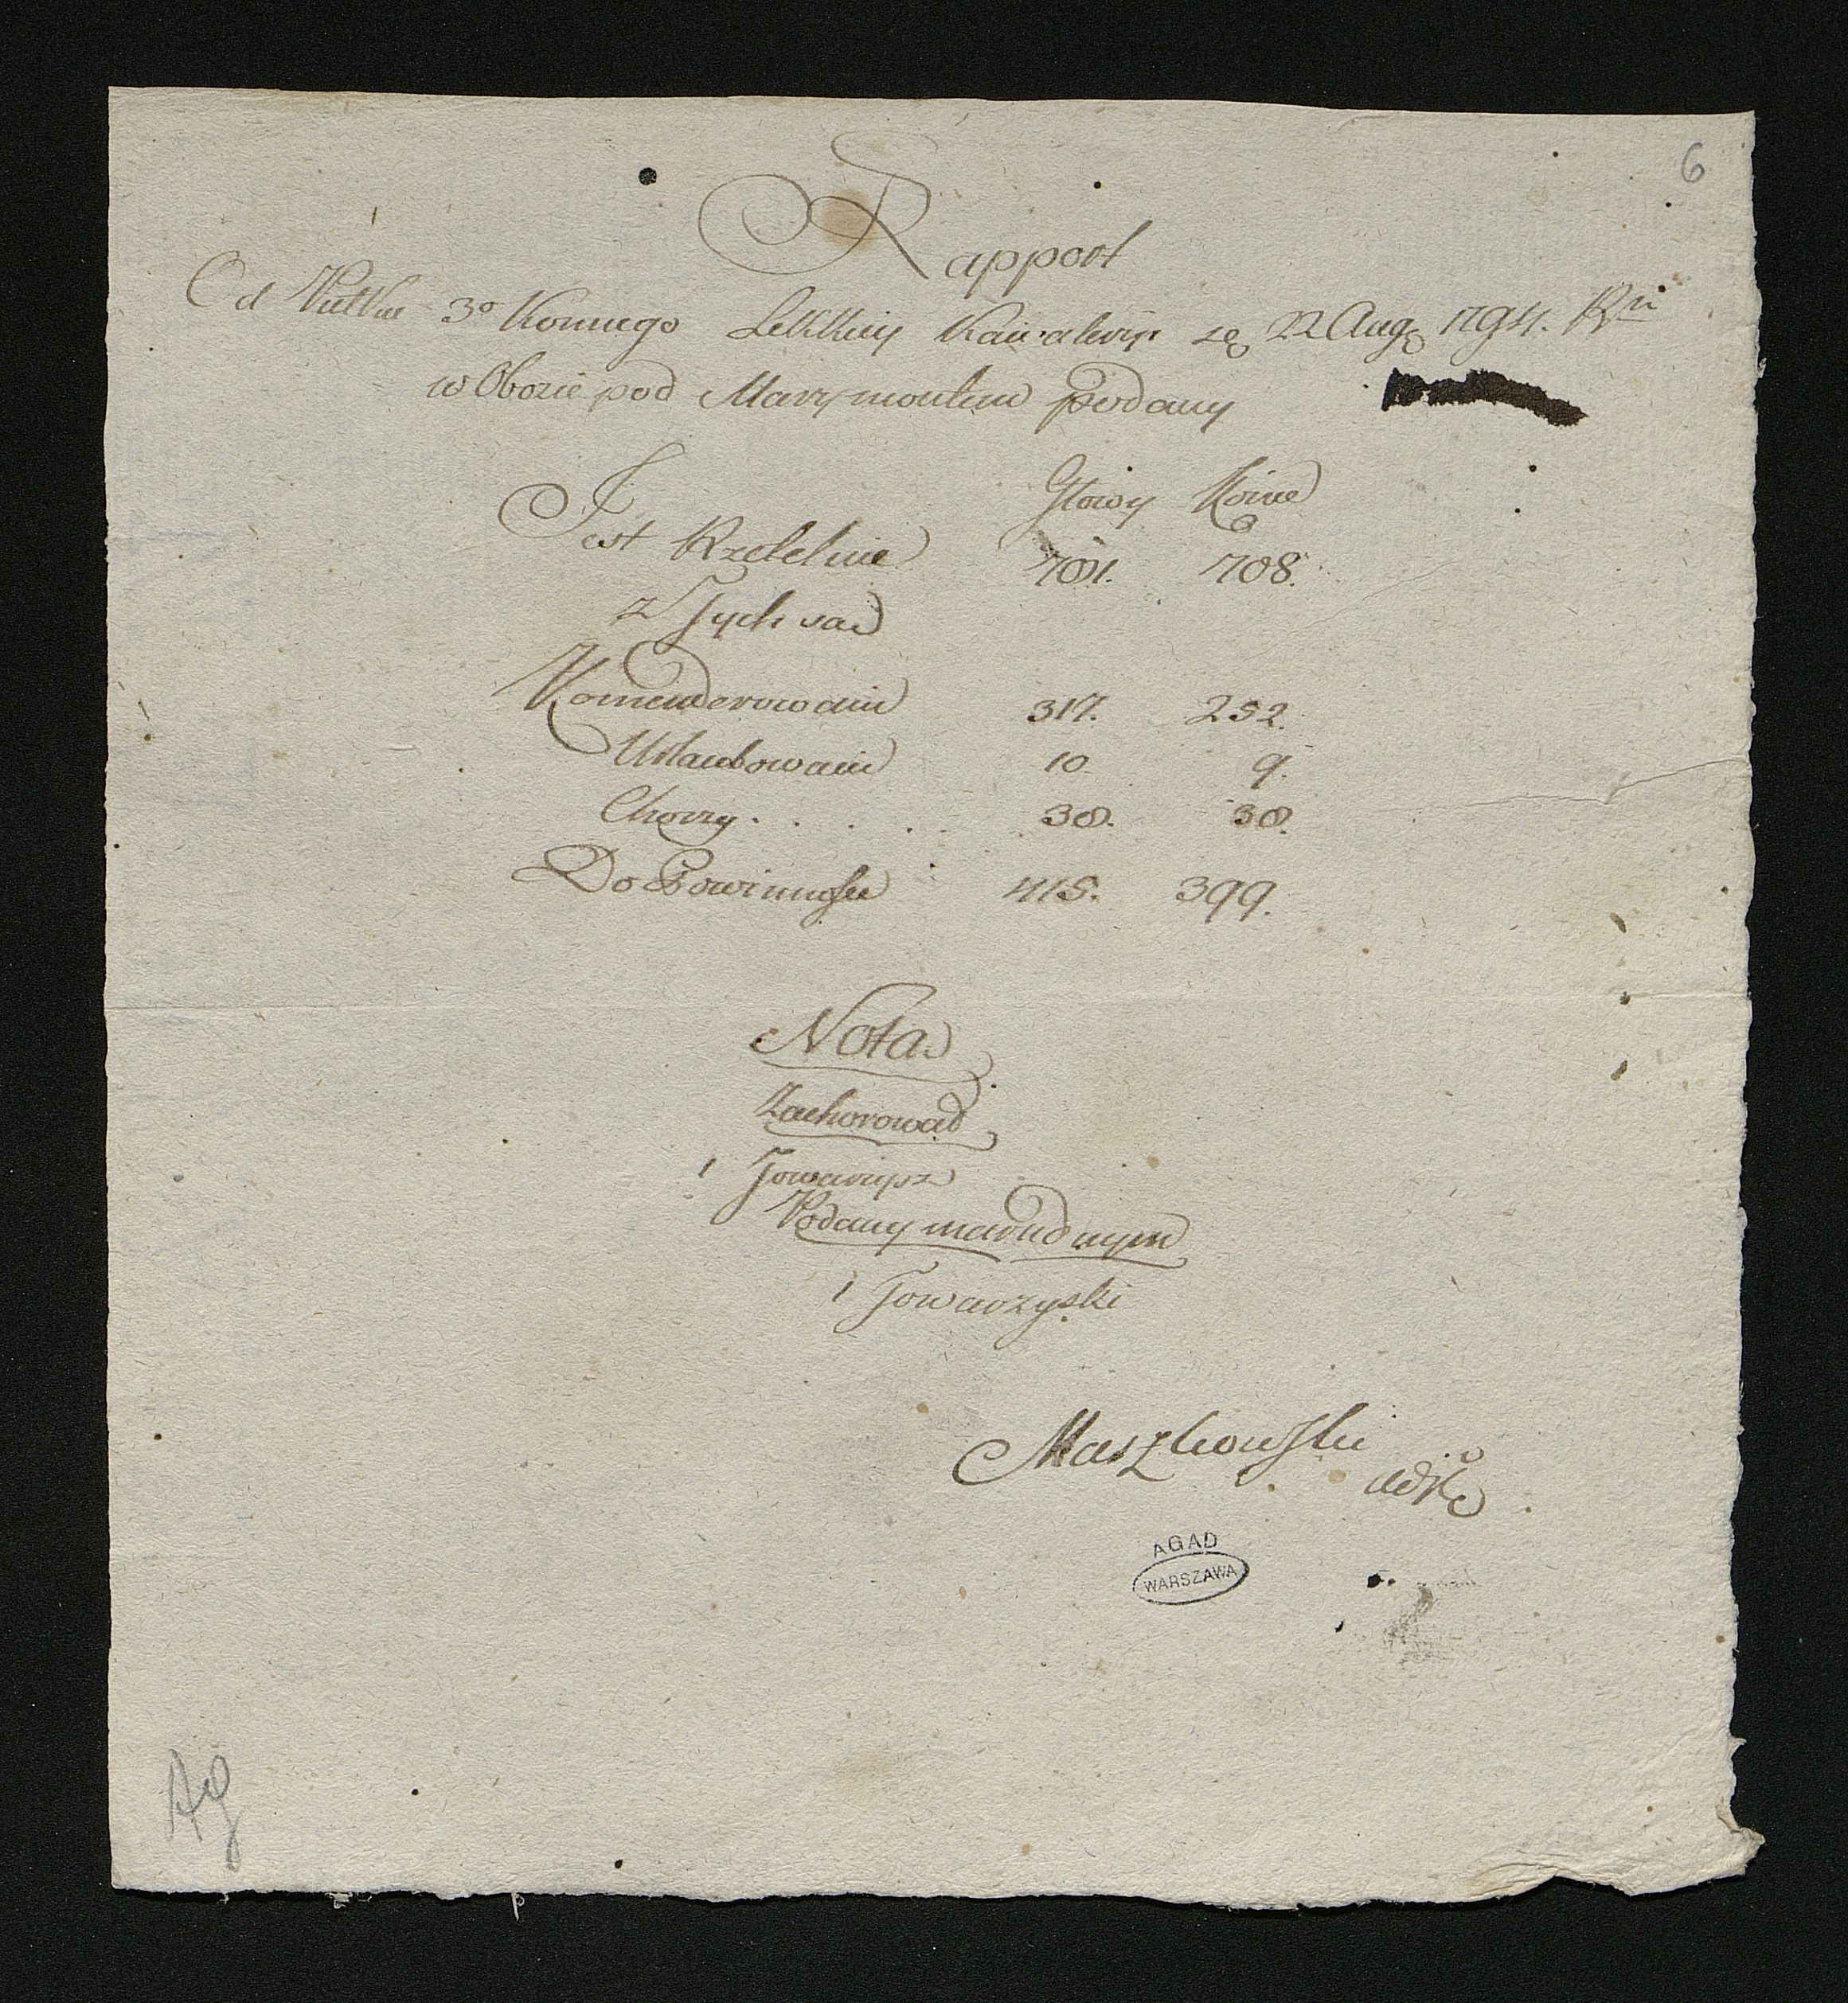 6
Rapport
Od Pułku 3º Konnego Lekkiey Kawaleryi de 22 Aug 1794. Rku
w Obozie pod Marymontem podany
Głowy Konie
Jest Rzetelnie 781. 708.
z Tych są
Komenderowani 317. 252.
Urlaubowani 10 9.
Chorzy . . . . . 38. 38.
Do Powinności 415. 399.
Nota
Zachorował
1 Towarzysz
Podany marudnym
1 Towarzyski
Maszkowski
AGAD
WARSZAWA